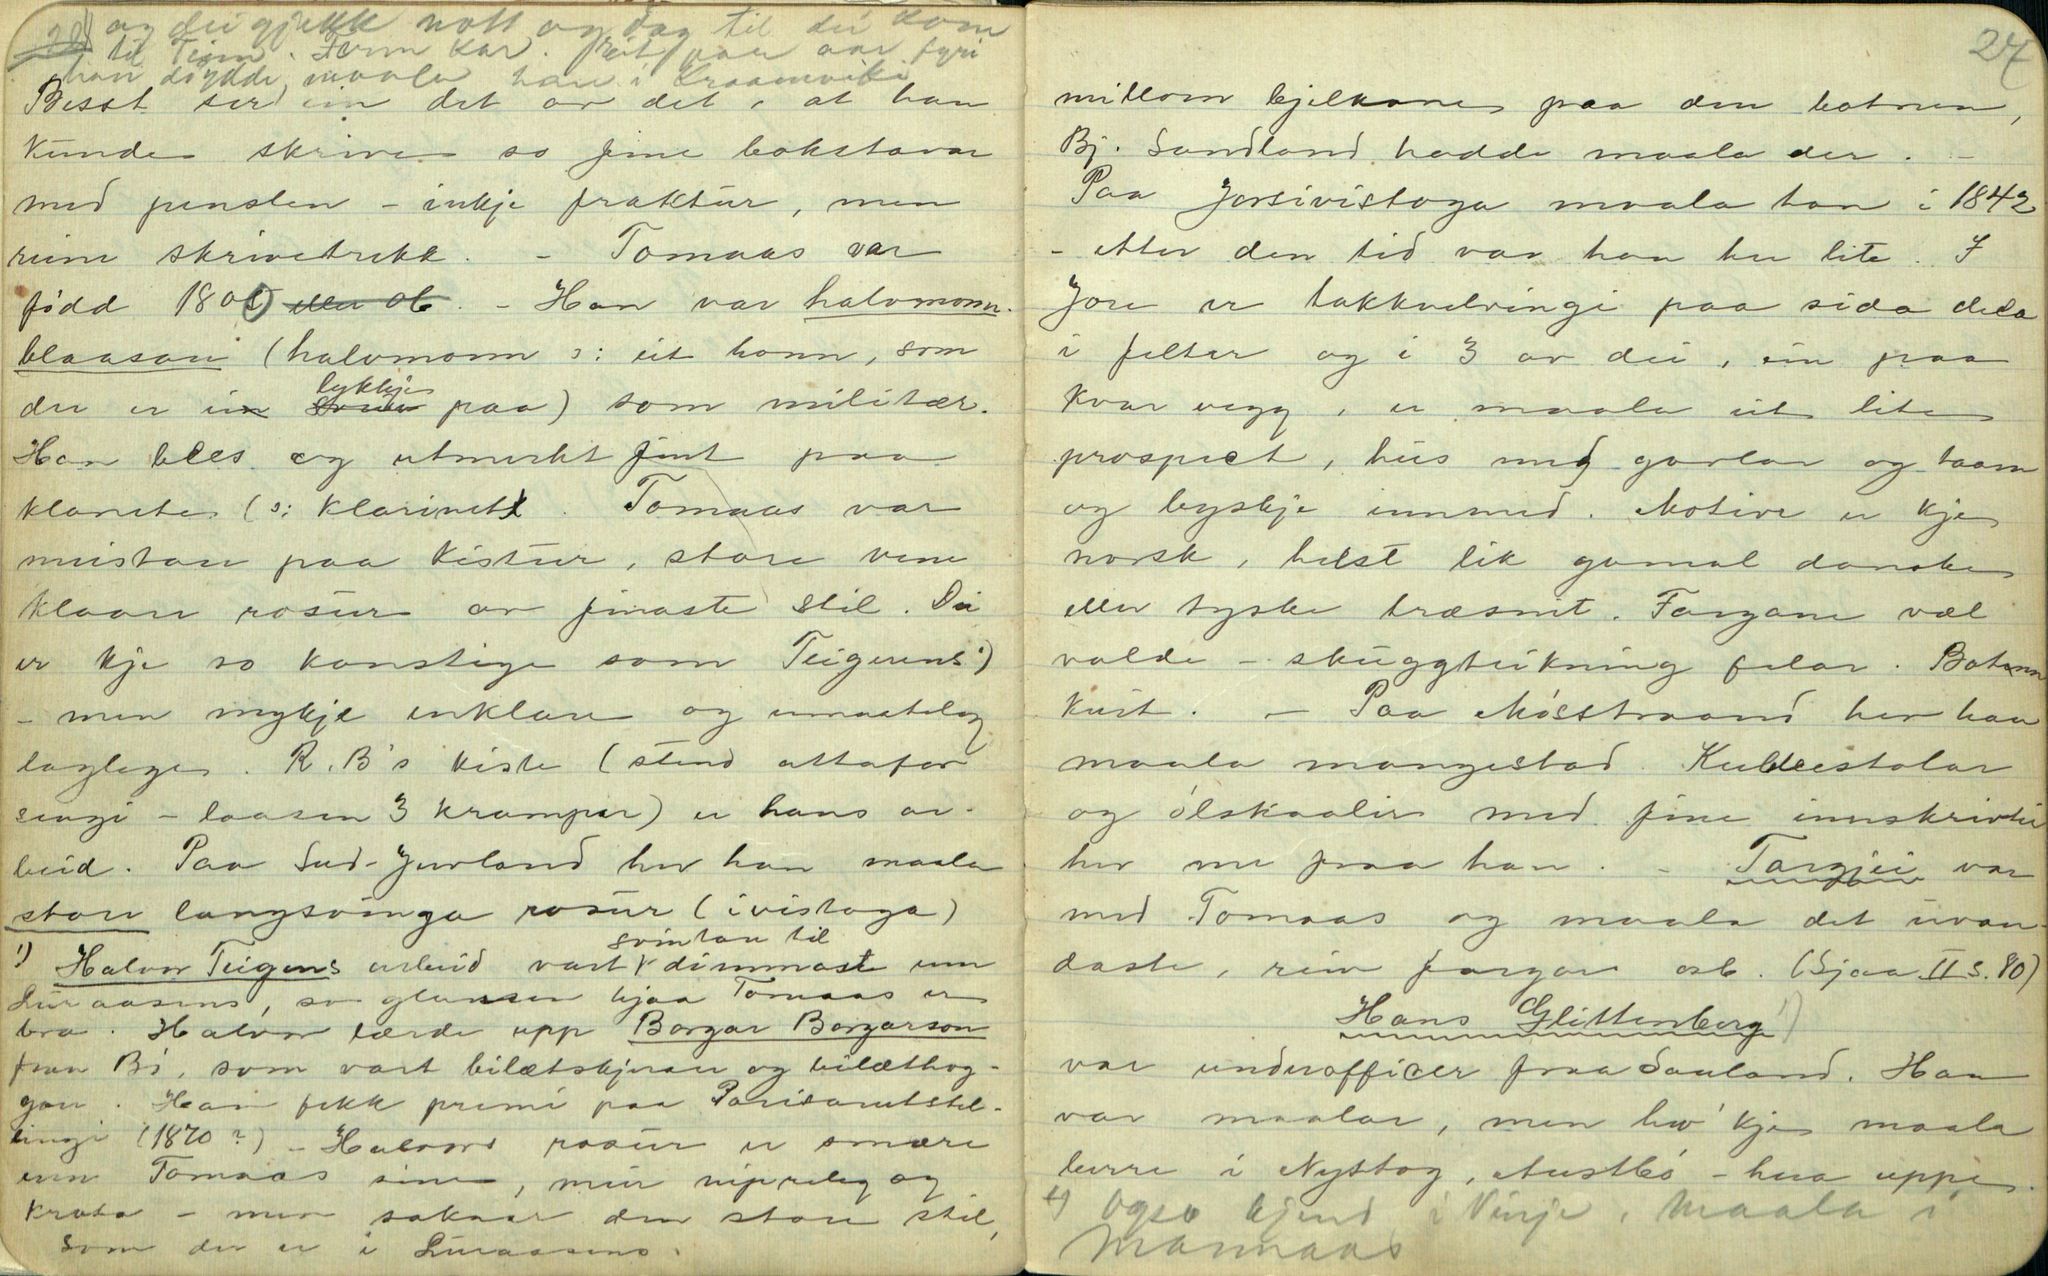 og dei gjekk nott og dag til dei kom
til Tinn. Form kar. Eit par aar fyri
han døydde, maala han i Kraamviki
Besst ser ein det av det, at han
kunde skrive so fine bokstavar
med penslen - inkje fraktur, men
rieme skrivetrekk. - Tomaas var
fødd 180 eller 06. - Han var halvmonn-
blaasar (halvmonn ɔ: eit honn, som
der er ein lykkje paa) som militær.
Han bles og utmerkt fint paa
klanete (ɔ: klarinett. Tomaas var
meistar paa kistur, store vene
klaare rosur av finaste stil. Dei
er kje so konstige som Teigens ¹)
- men mykje enklare og umaateleg
laglege. R. B's kiste (stend attafor
sengi - laasen 3 kramper) er hans ar-
beid. Paa Sud-Jurland hev han maala
store langsvinga rosur (i vistoga)
¹) Halvor Teigens arbeid vart svintare til dimmast enn
Luraasens, so glansen hjaa Tomaas er
bra. Halvor lærde upp Borgar Borgarson
fraa Bø, som vart bilætskjerar og bilæthog-
gar. Han fekk premi paa Parisarutstel-
lingi (1870?) - Halvors rosur er smære
enn Tomaas sine, meir nipreleg og
krota - men saknar den store stil,
som der er i Luraasens.
27
millom bjelkane paa den botnen,
Bj. Sandland hadde maala der. -
Paa Jore i vistoga maala han i 1842
- etter den tid var han her lite. I
Jore er takkvelvingi paa sida dela
i felter og i 3 av dei, ein paa
kvar vegg, er maala eit lite
prospect, hus med gavlar og taarn
og byskje innmed. Motive er kje
norsk, helst lik gamal danske
eller tyske træsnit. Fargane vel
valde - skuggteikning felar. Botnen
kvit. - Paa Møsstraand hev han
maala mangestad. Kubbestolar
og ølskaalir med fine innskrivtir
hev me fraa han. - Targjei var
med Tomaas og maala det uvan-
daste, reiv fargar osb. (Sjaa II s. 80)
Hans Glittenberg ¹)
var underofficer fraa Sauland. Han
var maalar, men hev' kje maala
berre i Nystog, Austbø - hea uppe.
¹) Ogso kjend i Vinje, maala i
Mannaas